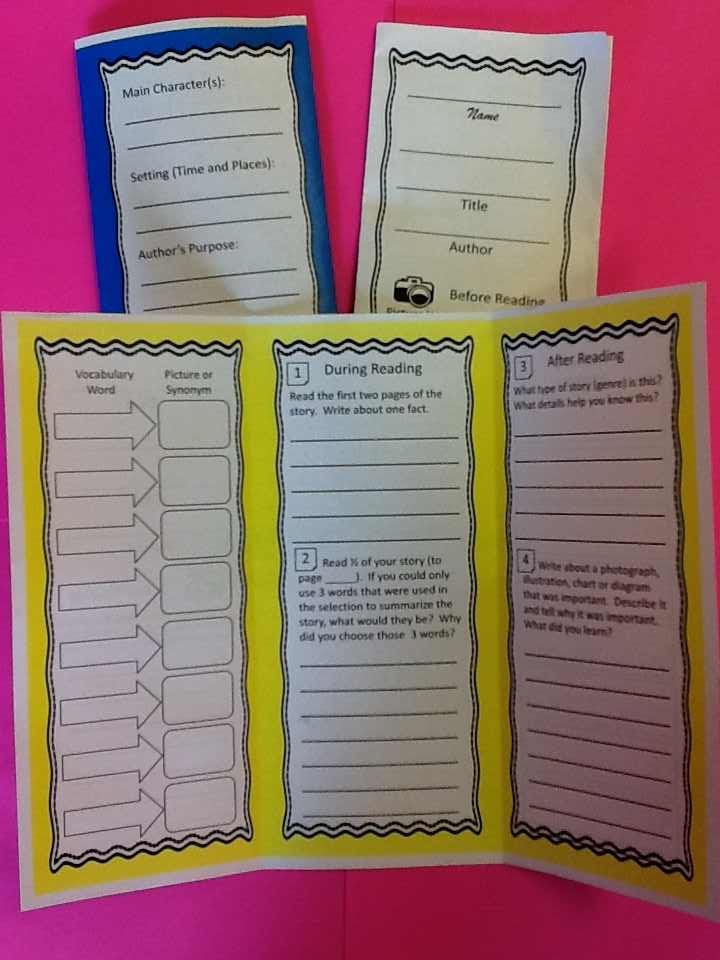 Main Character(s):
Setting (Time and Places):
Author's Purpose:
Name
Title
Author
Before Reading
Vocabulary Word
Picture or Synonym
1 During Reading
Read the first two pages of the
story. Write about one fact.
2 Read ½ of your story (to
page _____). If you could only
use 3 words that were used in
the selection to summarize the
story, what would they be? Why
did you choose those 3 words?
3 After Reading
What type of story (genre) is this?
What details help you know this?
4 Write about a photograph,
illustration, chart or diagram
that was important. Describe it
and tell why it was important.
What did you learn?